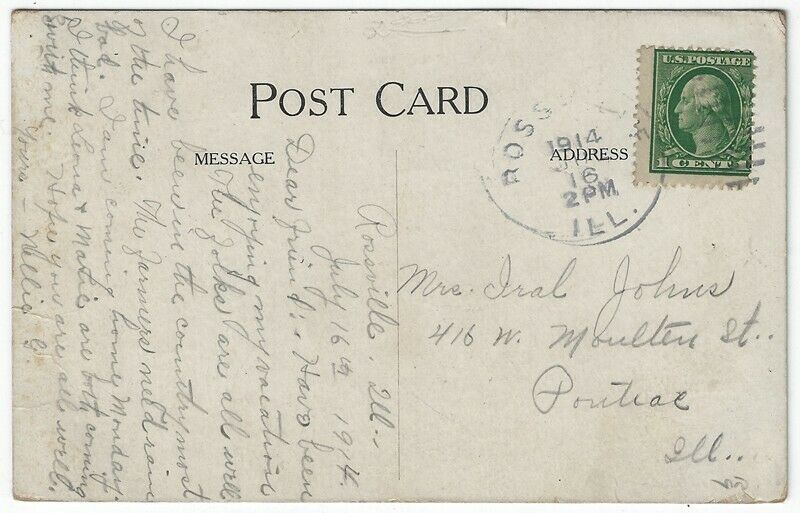 POST CARD
MESSAGE
ADDRESS
U.S. POSTAGE
1 CENT
ROSS
1914
16
2PM
ILL.
Rossville, Ill.,
July 16th 1914.
Dear friend:- Have been
enjoying my vacation
The folks are all well
I have been in the country most
of the time. The farmers need rain
bad. I am coming home Monday.
I think Leona & Matie are both coming
with me. Hope you are all well.
Yours - Nellie G
Mrs. Iral Johns
416 W. Moulton St.
Pontiac
Ill..